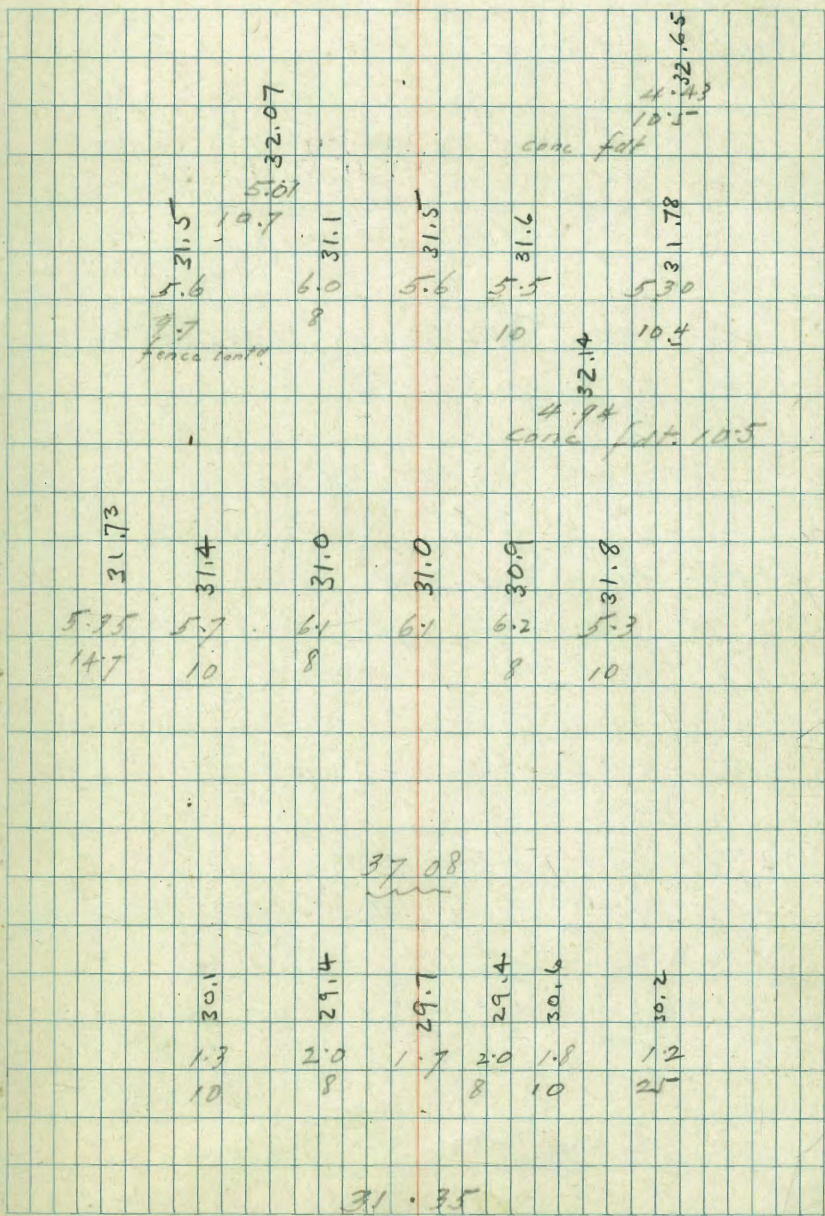 32.65
4.43
32.07
10.5
conc fdt
5.01
31.5 10.7 31.1 31.5 31.6 31.78
5.6 6.0 5.6 5.5 5 30
9.7 8 10 10.4
fence contd
32.14
4.94
conc fdt. 10.5
31.73 31.4 31.0 31.0 30.9 31.8
5.35 5.7 6.1 6.1 6.2 5.3
14.7 10 8 8 10
37 08
30.1 29.4 29.7 29.4 30.6 30.2
1.3 2.0 1.7 2.0 1.8 1.2
10 8 8 10 25
31.35